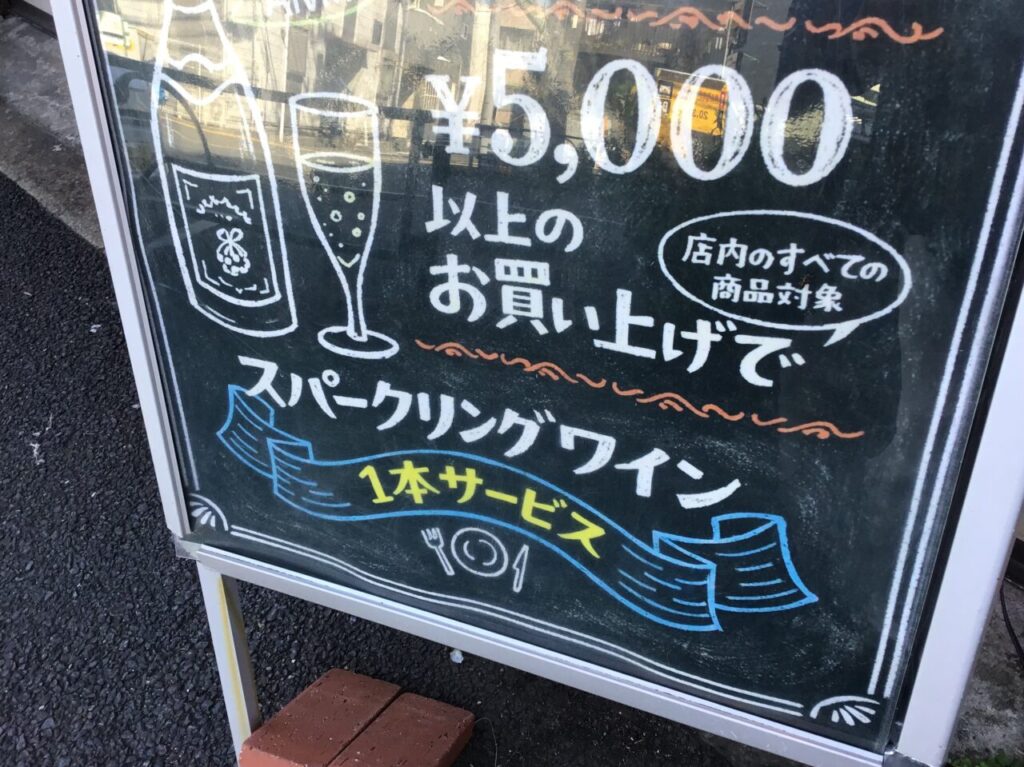 ¥5,000
以上の
お買い上げで
店内のすべての
商品対象
スパークリングワイン
1本サービス